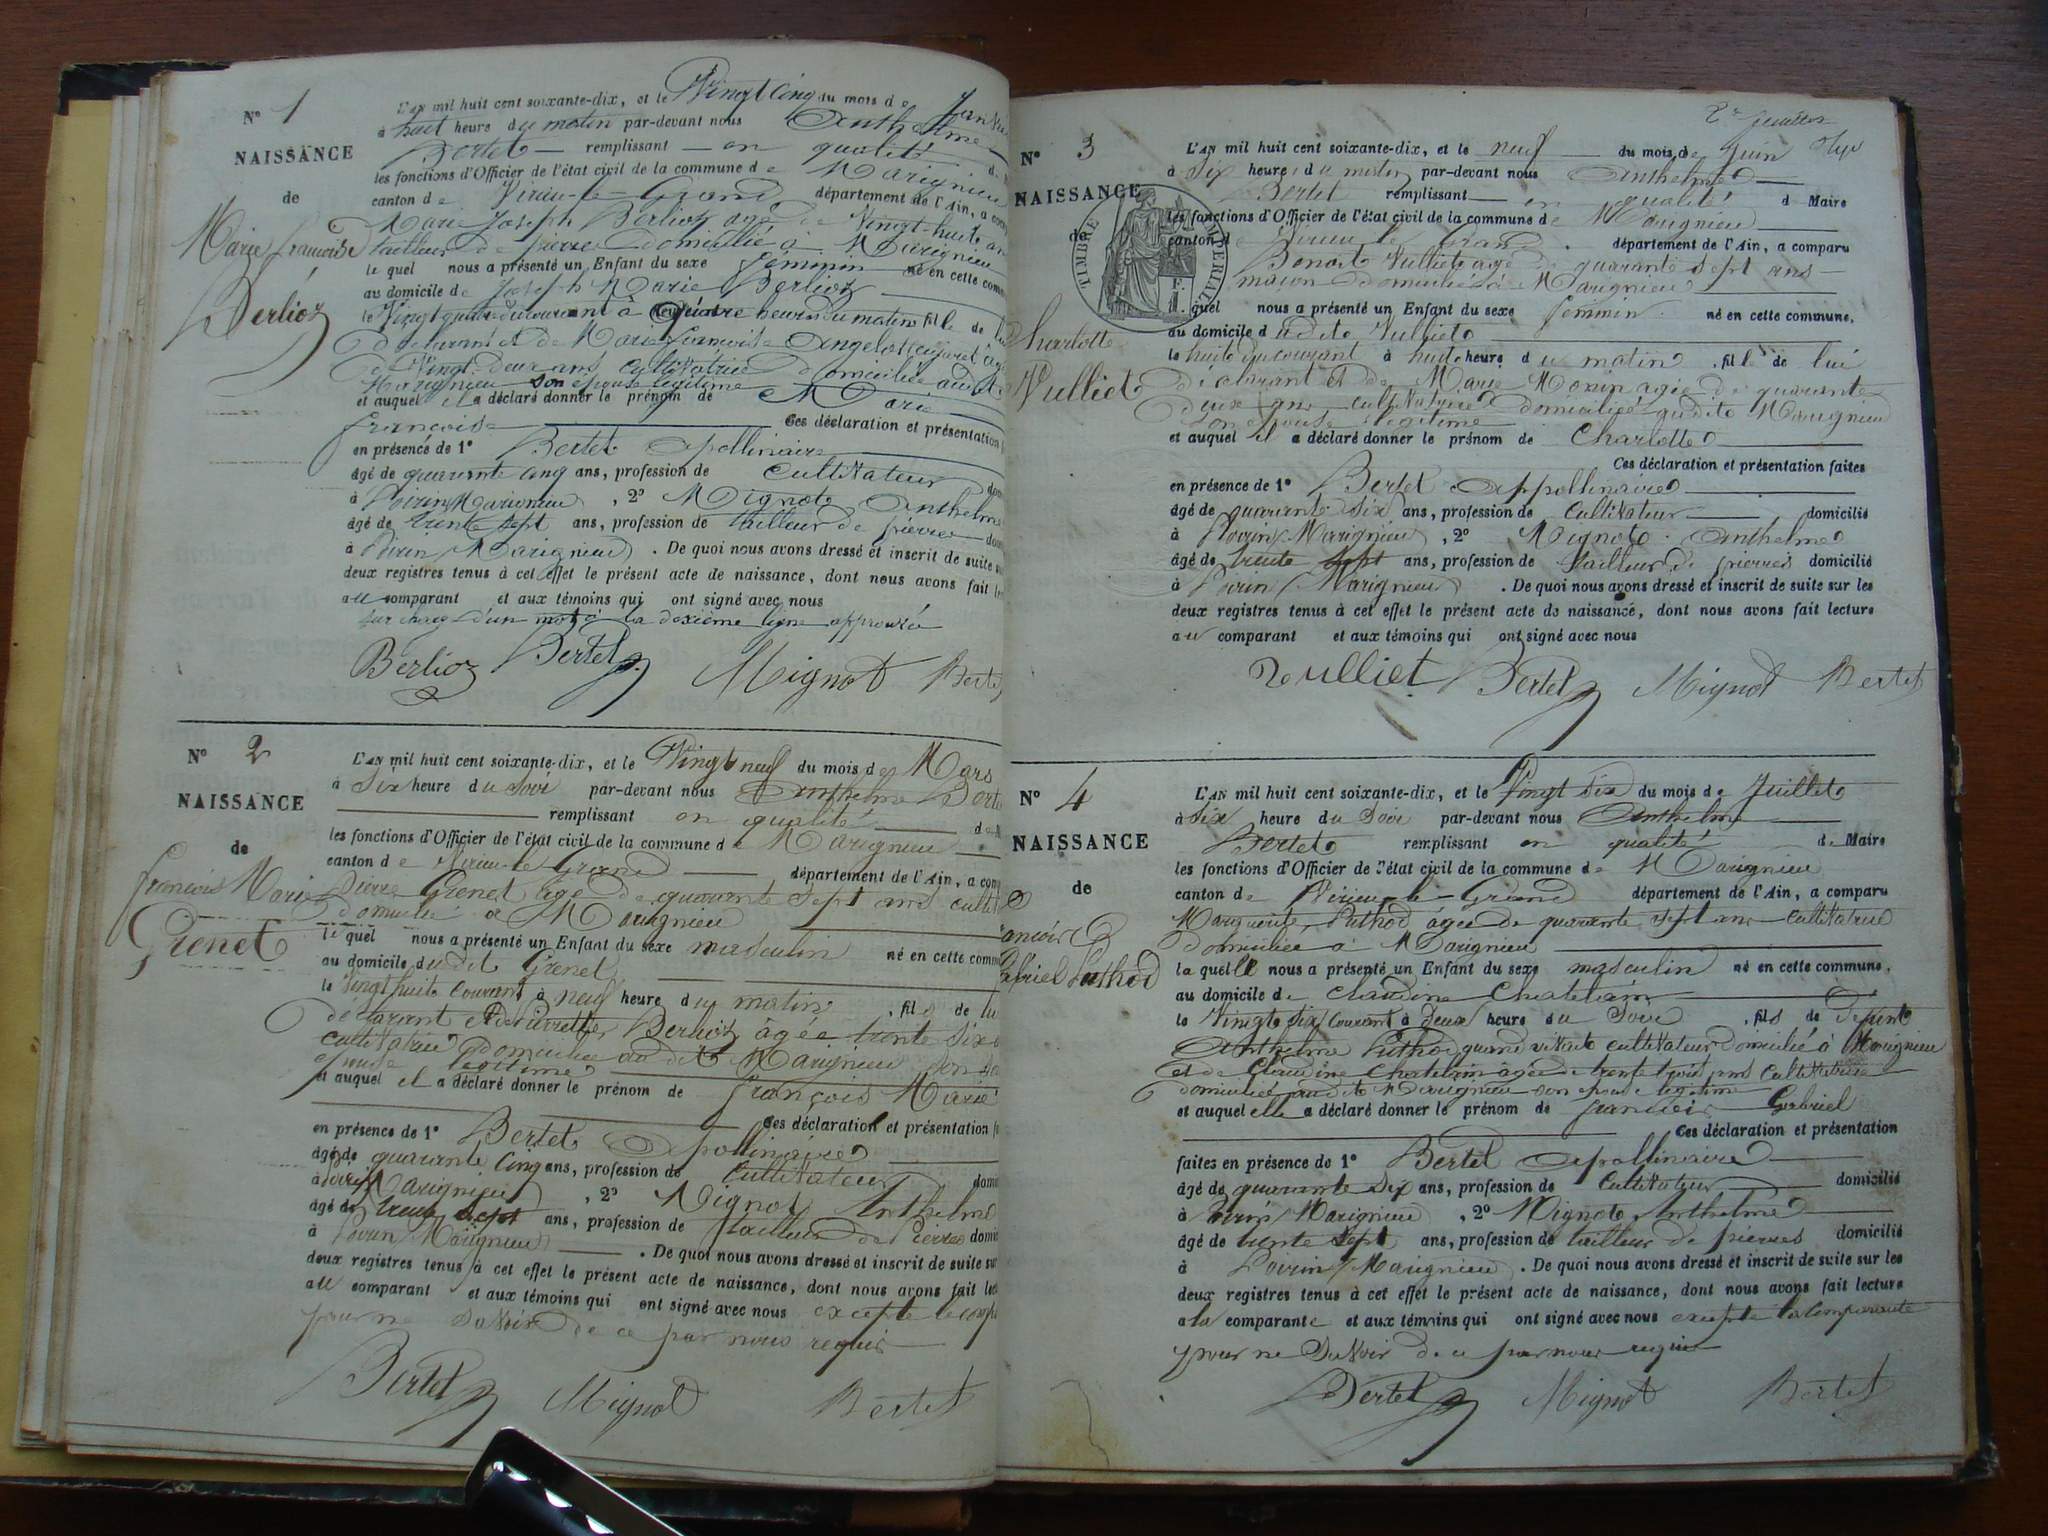 N° 1
NAISSANCE
de
Marie françoise
Berlioz
L'AN mil huit cent soixante-dix, et le Vingt cinq du mois de Janvi
à huit heure du matin par-devant nous Anthelme
Bertet remplissant en qualité d
les fonctions d'Officier de l'état civil de la commune de Marignieu
canton de Virieu-le-Grand département de l'Ain, a com
Marie Joseph Berlioz agé de Vingt-huit an
tailleur de pierre domicilié à Marignieu
le quel nous a présenté un Enfant du sexe féminin né en cette com
au domicile de Joseph Marie Berlioz
le Vingt quatre du courant à quatre heure du matin fille de lu
déclarant et de Marie françoise Angelot âg
de Vingt-deux ans cultivatrice domiciliée audit
Marignieu son épouse légitime
et auquel il a déclaré donner le prénom de Marie
françoise Ces déclaration et présentation
en présence de 1° Bertet Apollinaire
âgé de quarante cinq ans, profession de Cultivateur dom
à Poirin Marignieu, 2° Mignot Anthelme
âgé de trente sept ans, profession de tailleur de pierre dom
à Poirin Marignieu. De quoi nous avons dressé et inscrit de suite su
deux registres tenus à cet effet le présent acte de naissance, dont nous avons fait le
au comparant et aux témoins qui ont signé avec nous
sur charge d'un mot à la dexième ligne approuvée
Berlioz Bertet Mignot Berte
N° 2
NAISSANCE
de
françois Marie
Grenet
L'AN mil huit cent soixante-dix, et le Vingt neuf du mois de Mars
à Six heure du Soir par-devant nous Anthelme Berte
remplissant en qualité de
les fonctions d'Officier de l'état civil de la commune de Marignieu
canton de Virieu-le-Grand département de l'Ain, a com
Pierre Grenet âgé de quarante sept ans culti
domicilié à Marignieu
le quel nous a présenté un Enfant du sexe masculin né en cette comm
au domicile dudit Grenet
le Vingt huit courant à neuf heure du matin, fils de lu
déclarant et de Pierrette Berlioz âgée trente six
cultivatrice domiciliée au dit Marignieu son
épouse légitime
et auquel il a déclaré donner le prénom de François Marie
Ces déclaration et présentation f
en présence de 1° Bertet Apollinaire
âgé de quarante cinq ans, profession de Cultivateur domi
à Poirin Marignieu, 2° Mignot Anthelme
âgé de trente sept ans, profession de tailleur de Pierres domi
à Poirin Marignieu. De quoi nous avons dressé et inscrit de suite sur
deux registres tenus à cet effet le présent acte de naissance, dont nous avons fait lec
au comparant et aux témoins qui ont signé avec nous excepté le comp
pour ne Savoir de ce par nous requis
Bertet Mignot Bertet
2e feuillet
N° 3
NAISSANCE
de
TIMBRE IMPERIAL
1 F.
Charlotte
Vulliet
L'AN mil huit cent soixante-dix, et le neuf du mois de Juin
à Six heure du matin par-devant nous Anthelme
Bertet remplissant en qualité d Maire
les fonctions d'Officier de l'état civil de la commune de Marignieu
canton de Virieu le Grand. département de l'Ain, a comparu
Benoit Vulliet agé de quarante sept ans
maçon domicilié à Marignieu
quel nous a présenté un Enfant du sexe féminin né en cette commune,
au domicile dudit Vulliet
le huit du courant à huit heure du matin, fille de lui
déclarant et de Marie Morin agée de quarante
deux ans cultivatrice domiciliée audit Marignieu
son épouse légitime
et auquel il a déclaré donner le prénom de Charlotte
Ces déclaration et présentation faites
en présence de 1° Bertet Appollinaire
âgé de quarante six ans, profession de Cultivateur domicilié
à Poirin Marignieu, 2° Mignot Anthelme
âgé de trente sept ans, profession de tailleur de pierres domicilié
à Poirin Marignieu. De quoi nous avons dressé et inscrit de suite sur les
deux registres tenus à cet effet le présent acte de naissance, dont nous avons fait lecture
au comparant et aux témoins qui ont signé avec nous
Vulliet Bertet Mignot Bertet
N° 4
NAISSANCE
de
ançois
abriel Puthod
L'AN mil huit cent soixante-dix, et le Vingt Six du mois de Juillet
à six heure du Soir par-devant nous Anthelme
Bertet remplissant en qualité de Maire
les fonctions d'Officier de l'état civil de la commune de Marignieu
canton de Virieu-le-Grand département de l'Ain, a comparu
Marguerite Puthod agée de quarante sept ans cultivatrice
domiciliée à Marignieu
la quelle nous a présenté un Enfant du sexe masculin né en cette commune,
au domicile de Claudine Chatelain
le Vingt six courant à deux heure du Soir, fils de Defunt
Anthelme Puthod quand vivait cultivateur domicilié à Marignieu
et de Claudine Chatelain agée de trente trois ans Cultivatrice
domiciliée audit Marignieu son épouse légitime
et auquel elle a déclaré donner le prénom de françois Gabriel
Ces déclaration et présentation
faites en présence de 1° Bertet Apollinaire
âgé de quarante six ans, profession de Cultivateur domicilié
à Poirin Marignieu, 2° Mignot Anthelme
âgé de trente sept ans, profession de tailleur de pierres domicilié
à Poirin Marignieu. De quoi nous avons dressé et inscrit de suite sur les
deux registres tenus à cet effet le présent acte de naissance, dont nous avons fait lecture
a la comparante et aux témoins qui ont signé avec nous excepté la Comparante
pour ne Savoir de ce par nous requis
Bertet Mignot Bertet